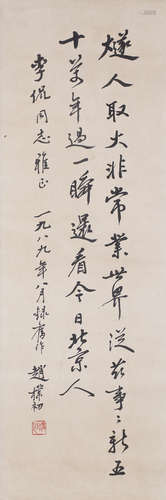 燧人取火非常業世界從茲事〻新五
十萬年過一瞬還看今日北京人
李侃同志雅正 一九八九年八月録舊作 趙樸初